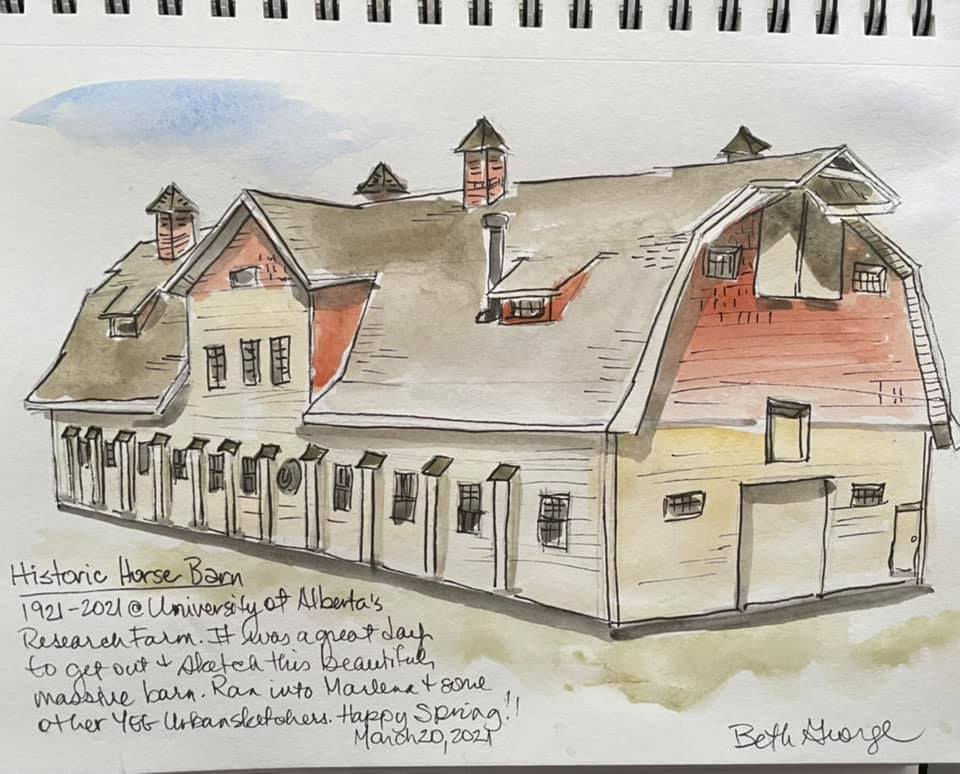 Historic Horse Barn
1921-2021 @ University of Alberta's
Research Farm. It was a great day
to get out + sketch this beautiful,
massive barn. Ran into Marlena + some
other YEG Urbansketchers. Happy Spring!!
March 20, 2021
Beth George